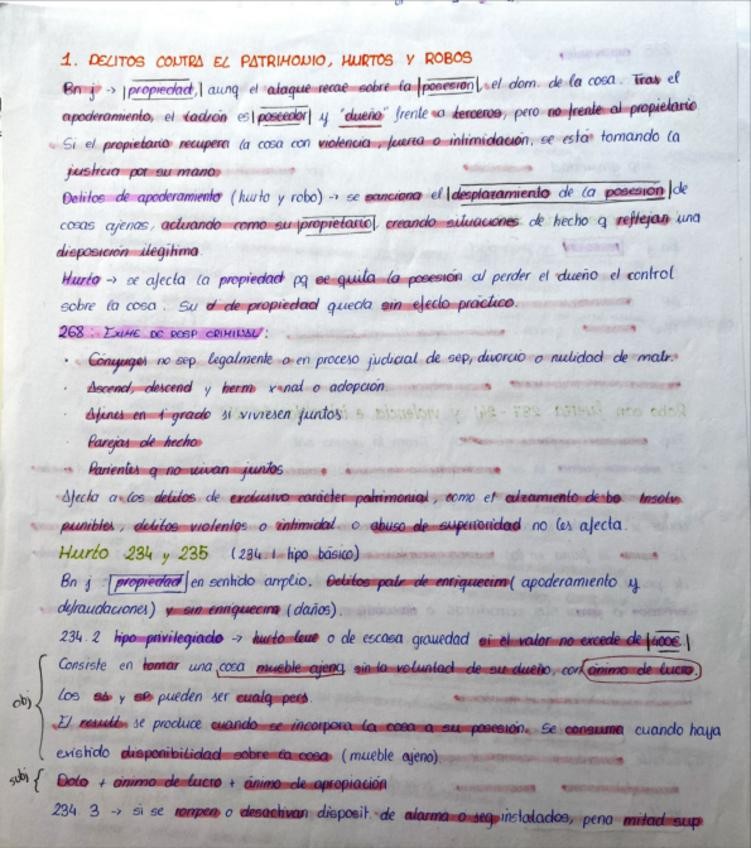 1. DELITOS CONTRA EL PATRIMONIO, HURTOS Y ROBOS
Bn j → propiedad, aunq el ataque recae sobre la posesión, el dom. de la cosa. Tras el
apoderamiento, el ladrón es poseedor y "dueño" frente a terceros, pero no frente al propietario
Si el propietario recupera la cosa con violencia, fuerza o intimidación, se está tomando la
justicia por su mano
Delitos de apoderamiento (hurto y robo) → se sanciona el desplazamiento de la posesión de
cosas ajenas, actuando como su propietario, creando situaciones de hecho q reflejan una
disposición ilegítima
Hurto → se afecta la propiedad pq se quita la posesión al perder el dueño el control
sobre la cosa. Su d de propiedad queda sin efecto práctico.
268: EXIME DE RESP CRIMINAL:
· Cónyuges no sep legalmente o en proceso judicial de sep, divorcio o nulidad de matr.
· Ascend, descend y herm x nal o adopción
· Afines en 1 grado si viviesen juntos
· Parejas de hecho
· Parientes q no vivan juntos
Afecta a los delitos de exclusivo carácter patrimonial, como el alzamiento de bo Insolv
punibles, delitos violentos o intimidal. o abuso de superioridad no les afecta.
Hurto 234 y 235 (234 1 tipo básico)
Bn j: propiedad en sentido amplio. Delitos patr de enriquecim (apoderamiento y
defraudaciones) y sin enriquecim (daños).
234.2 tipo privilegiado → hurto leve o de escasa gravedad si el valor no excede de 400€.
Consiste en tomar una cosa mueble ajena sin la voluntad de su dueño, con ánimo de lucro.
obj
Los sa y sp pueden ser cualq pers.
El result se produce cuando se incorpora la cosa a su posesión. Se consuma cuando haya
existido disponibilidad sobre la cosa (mueble ajeno).
subj Dolo + ánimo de lucro + ánimo de apropiación
234 3 → si se rompen o desactivan disposit. de alarma o seg instalados, pena mitad sup